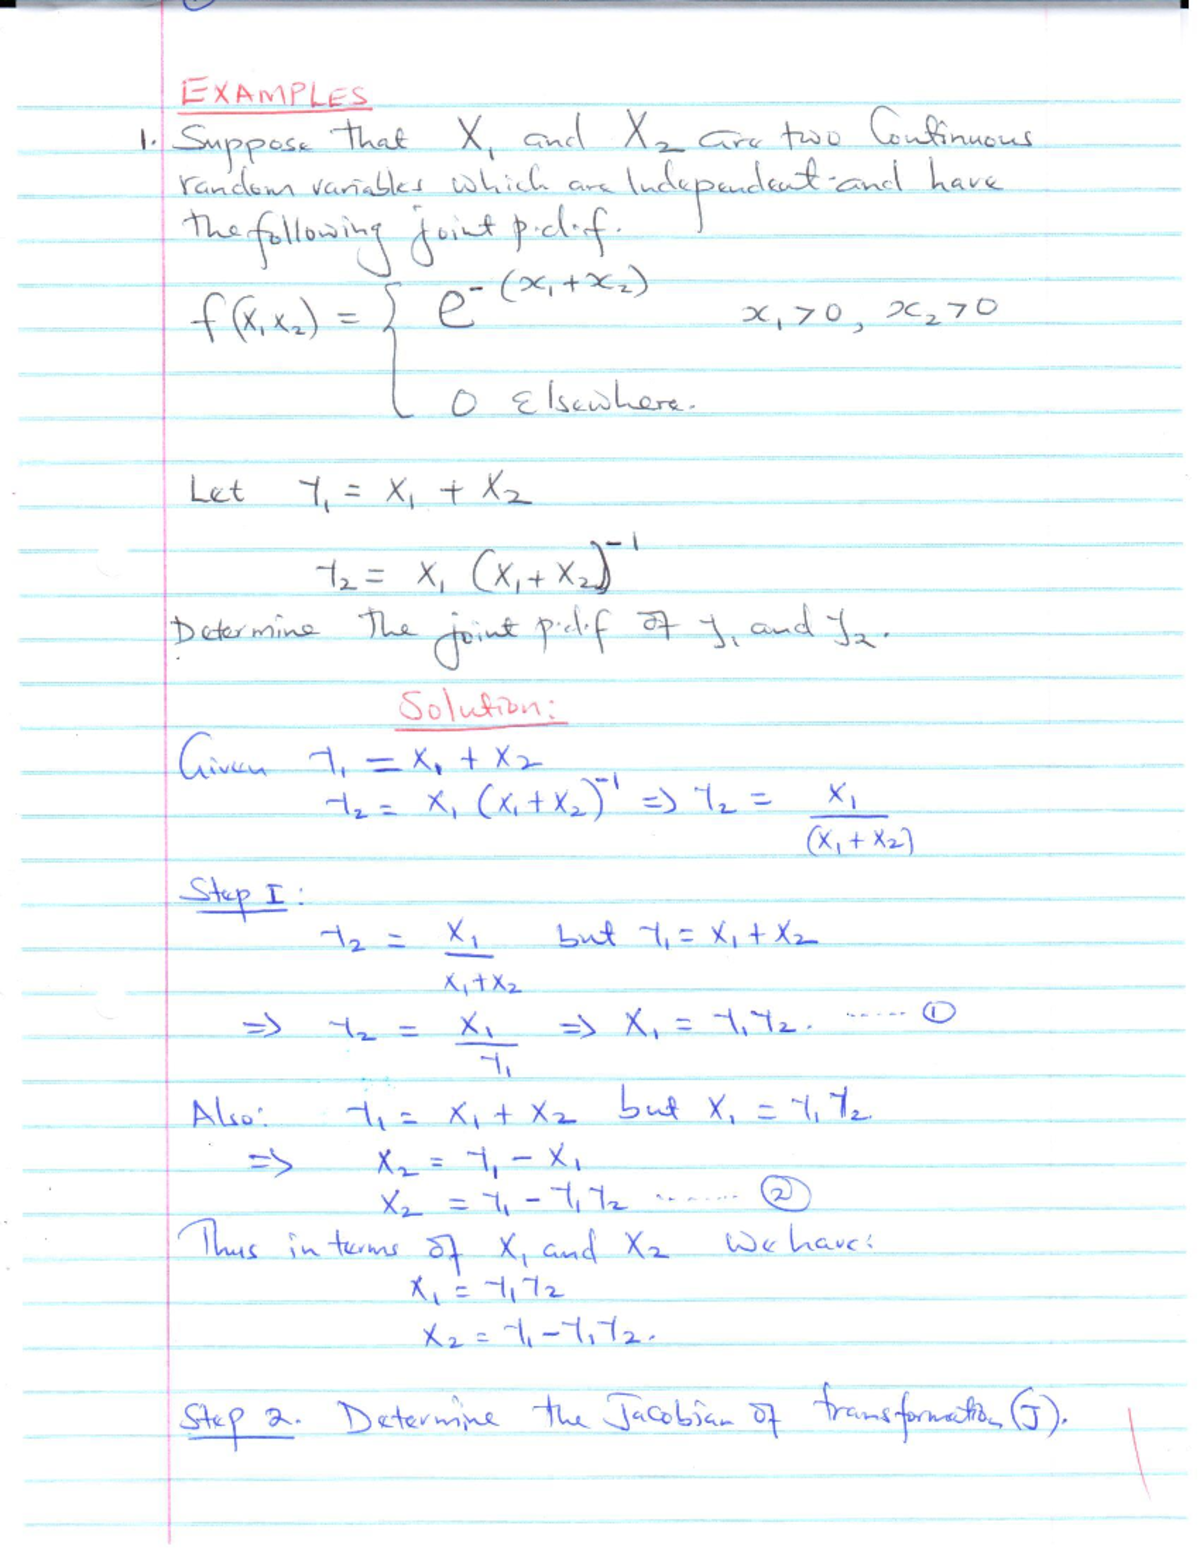 EXAMPLES
1. Suppose that X₁ and X₂ are two Continuous
random variables which are Independent and have
the following joint p.d.f.
f(x₁x₂) = { e^-(x₁+x₂)   x₁>0, x₂>0
0 Elsewhere.
Let Y₁ = X₁ + X₂
Y₂ = X₁ (X₁+X₂)⁻¹
Determine the joint p.d.f of y₁ and y₂.
Solution:
Given Y₁ = X₁ + X₂
Y₂ = X₁ (X₁+X₂)⁻¹ => Y₂ = X₁/(X₁+X₂)
Step I:
Y₂ = X₁/X₁+X₂ but Y₁ = X₁+X₂
=> Y₂ = X₁/Y₁ => X₁ = Y₁Y₂. ...... ①
Also: Y₁ = X₁ + X₂ but X₁ = Y₁Y₂
=> X₂ = Y₁ - X₁
X₂ = Y₁ - Y₁Y₂ ........ ②
Thus in terms of X₁ and X₂ we have:
X₁ = Y₁Y₂
X₂ = Y₁-Y₁Y₂.
Step 2. Determine the Jacobian of transformation (J).